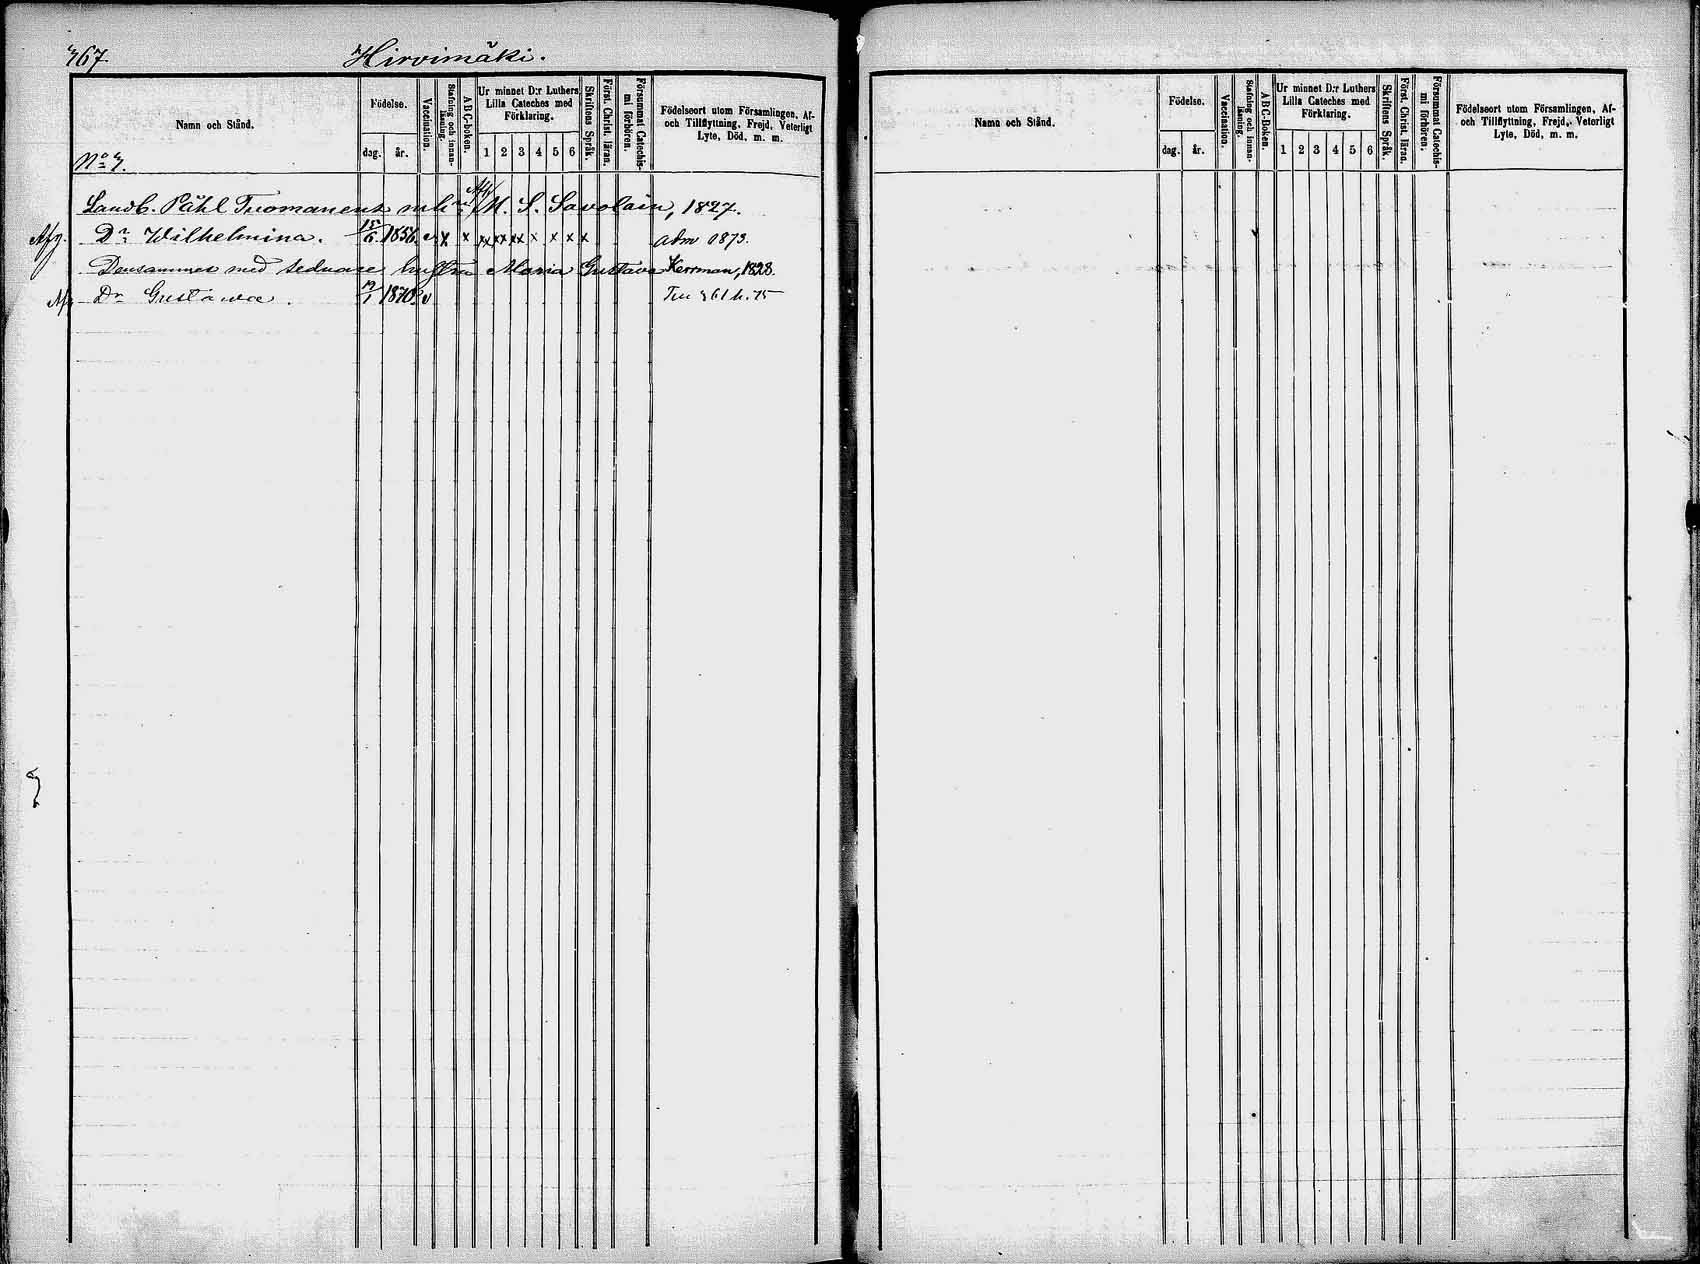 367.
Hirvimäki.
Namn och Stånd.
Födelse.
dag.
år.
Vaccination.
Stafning och innanläsning.
ABC-boken.
Ur minnet D:r Luthers Lilla Cateches med Förklaring.
1 2 3 4 5 6
Skriftens Språk.
Först. Christ. läran.
Försummat Catechismi förhören.
Födelseort utom Församlingen, Af- och Tillflyttning, Frejd, Veterligt Lyte, Död, m. m.
No 3.
Landb. Påhl Tuomanens M. S. Savolain, 1827.
Afg. Dr Wilhelmina. 15/6 1856. v x x xx xx xx x x x x adm 1873.
Densammes med sednare hustru Maria Gustava Kerrman, 1828.
Dr Gustava. 19/1 1870. v 361 h. 75
Namn och Stånd.
Födelse.
dag.
år.
Vaccination.
Stafning och innanläsning.
ABC-Boken.
Ur minnet D:r Luthers Lilla Cateches med Förklaring.
1 2 3 4 5 6
Skriftens Språk.
Först. Christ. läran.
Försummat Catechismi förhören.
Födelseort utom Församlingen, Af- och Tillflyttning, Frejd, Veterligt Lyte, Död, m. m.